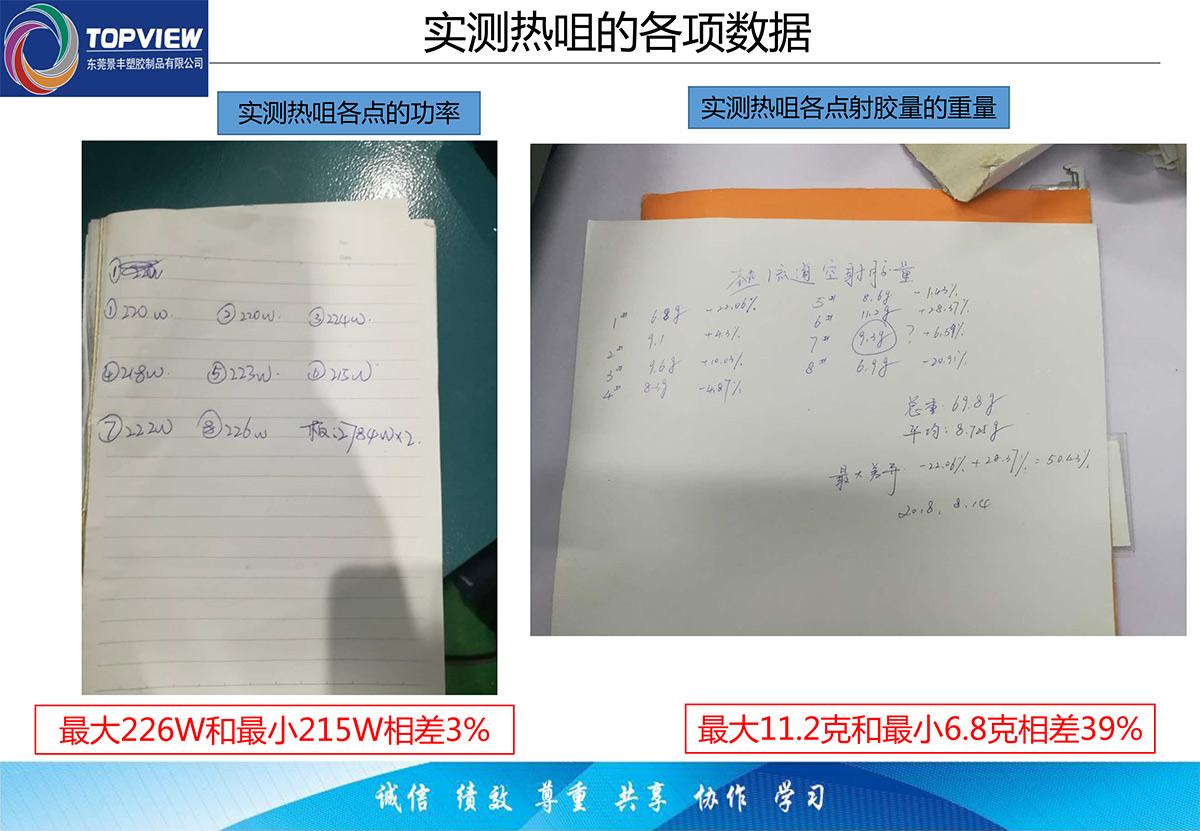 TOPVIEW
东莞景丰塑胶制品有限公司
实测热咀的各项数据
实测热咀各点的功率
①220W. ②220W. ③224W.
④218W. ⑤223W. ⑥215W
⑦222W ⑧226W 板:2784W×2.
最大226W和最小215W相差3%
实测热咀各点射胶量的重量
热流道空射胶量
1# 6.8g -22.06%
2# 9.1 +4.3%
3# 9.6g +10.03%
4# 8.3g -4.87%
5# 8.6g -1.43%
6# 11.2g +28.37%
7# 9.3g ? +6.59%
8# 6.9g -20.91%
总重: 69.8g
平均: 8.725g
最大差异: -22.06% + 28.37% = 50.43%
2018. 8.14
最大11.2克和最小6.8克相差39%
诚信 绩效 尊重 共享 协作 学习